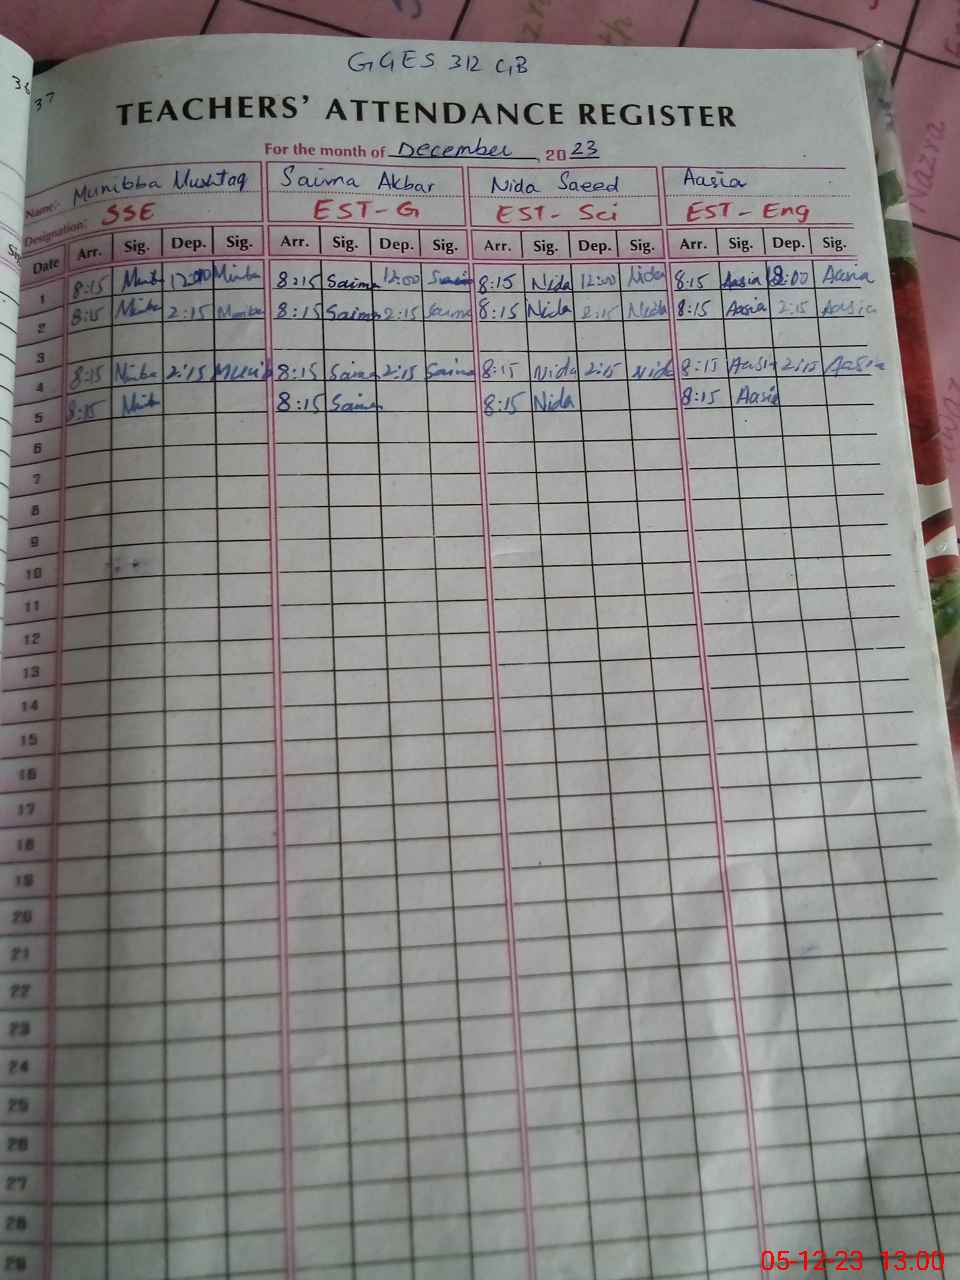 GGES 312 GB
36
37
TEACHERS' ATTENDANCE REGISTER
For the month of December, 2023
Name: Munibba Mushtaq Saima Akbar Nida Saeed Aasia
Designation: SSE EST-G EST-Sci EST-Eng
Date Arr. Sig. Dep. Sig. Arr. Sig. Dep. Sig. Arr. Sig. Dep. Sig. Arr. Sig. Dep. Sig.
1 8:15 12:00 8:15 Saima 12:00 Saima 8:15 Nida 12:00 Nida 8:15 Aasia 12:00 Aasia
2 8:15 2:15 8:15 Saima 2:15 Saima 8:15 Nida 2:15 Nida 8:15 Aasia 2:15 Aasia
3
4 8:15 2:15 8:15 Saima 2:15 Saima 8:15 Nida 2:15 Nida 8:15 Aasia 2:15 Aasia
5 8:15 8:15 Saima 8:15 Nida 8:15 Aasia
6
7
8
9
10
11
12
13
14
15
16
17
18
19
20
21
22
23
24
25
26
27
28
29
Nazra
05-12-23 13:00